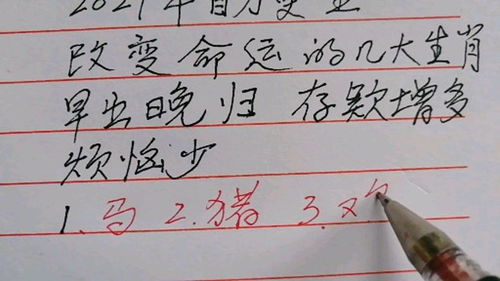 改变命运的几大生肖
早出晚归 存款增多
烦恼少
1.马 2.猪 3.